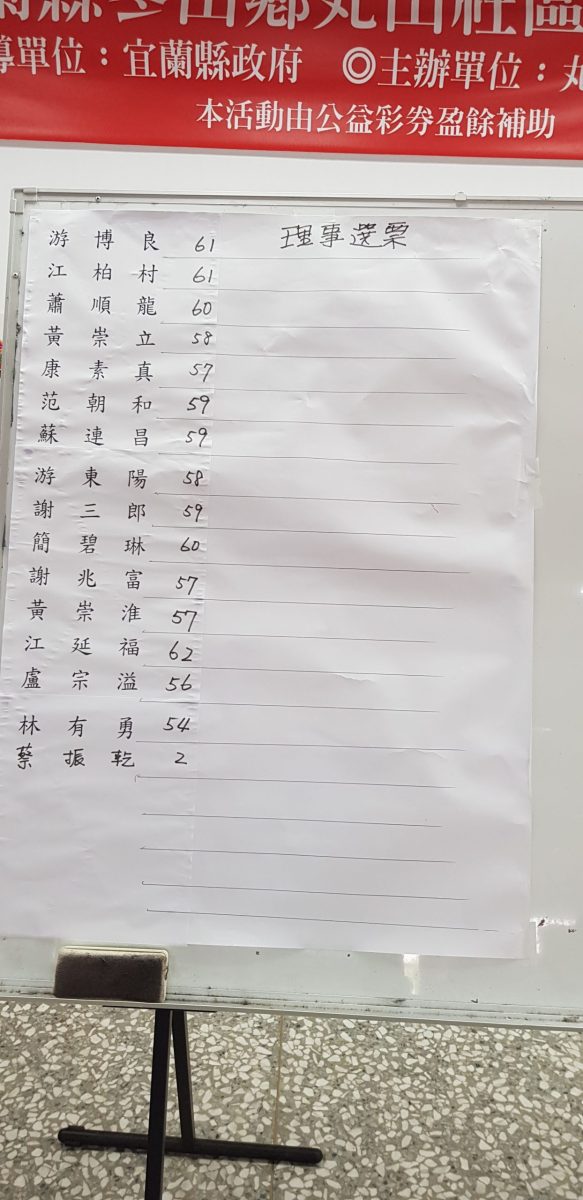 蘭縣冬山鄉丸山社區
導單位：宜蘭縣政府 ◎主辦單位：丸
本活動由公益彩券盈餘補助
理事選票
游博良 61
江柏村 61
蕭順龍 60
黃崇立 58
康素真 57
范朝和 59
蘇連昌 59
游東陽 58
謝三郎 59
簡碧琳 60
謝兆富 57
黃崇淮 57
江延福 62
盧宗溢 56
林有勇 54
蔡振乾 2